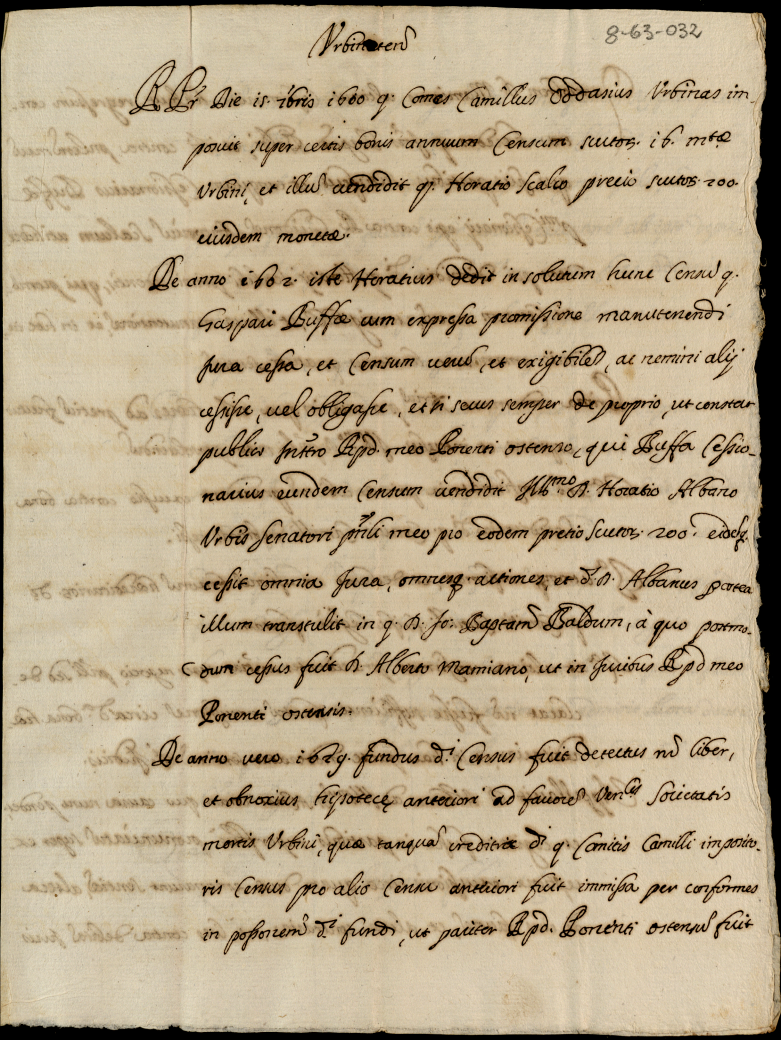 8-63-032
Urbinaten̄
R. Pr̄ Die 15. 7bris 1600 q. Comes Camillus Oddasius Urbinas im-
posuit super certis bonis annuum Censum scutor. 16. mtæ
Urbini, et illū vendidit q. Horatio Scalvo precio scutor. 200.
eiusdem monetæ.
De anno 1602. iste Horatius dedit in solutum hunc Censū q.
Gaspari Buffæ cum expressa promissione manutenendi
Jura cessa, et Censum verū, et exigibilē, ac nemini alij
cessisse, vel obligasse, et si secus semper de proprio, ut constat
publico Instro Rpd. meo Ponenti ostenso, qui Buffa Cessio-
narius eundem Censum vendidit Illmo D. Horatio Albano
Urbis senatori meo pro eodem pretio scutor. 200. eidēq.
cessit omnia Jura, omnesq. actiones, et d. D. Albanus postea
illum transtulit in q. D. Jo: Baptam̄ Baldum, à quo postmo-
dum cessus fuit D. Alberto Mamiano, ut in Juribus Rpd meo
Ponenti ostensis.
De anno vero 1629. fundus di Census fuit detectus nō liber,
et obnoxius hypotecę anteriori ad favorē Venlis Societatis
mortis Urbini, quæ tanquā creditrix di q. Comitis Camilli imposito-
ris Census pro alio Censu anteriori fuit immissa per conformes
in possonem̄ di fundi, ut pariter Rpd. Ponenti ostensū fuit